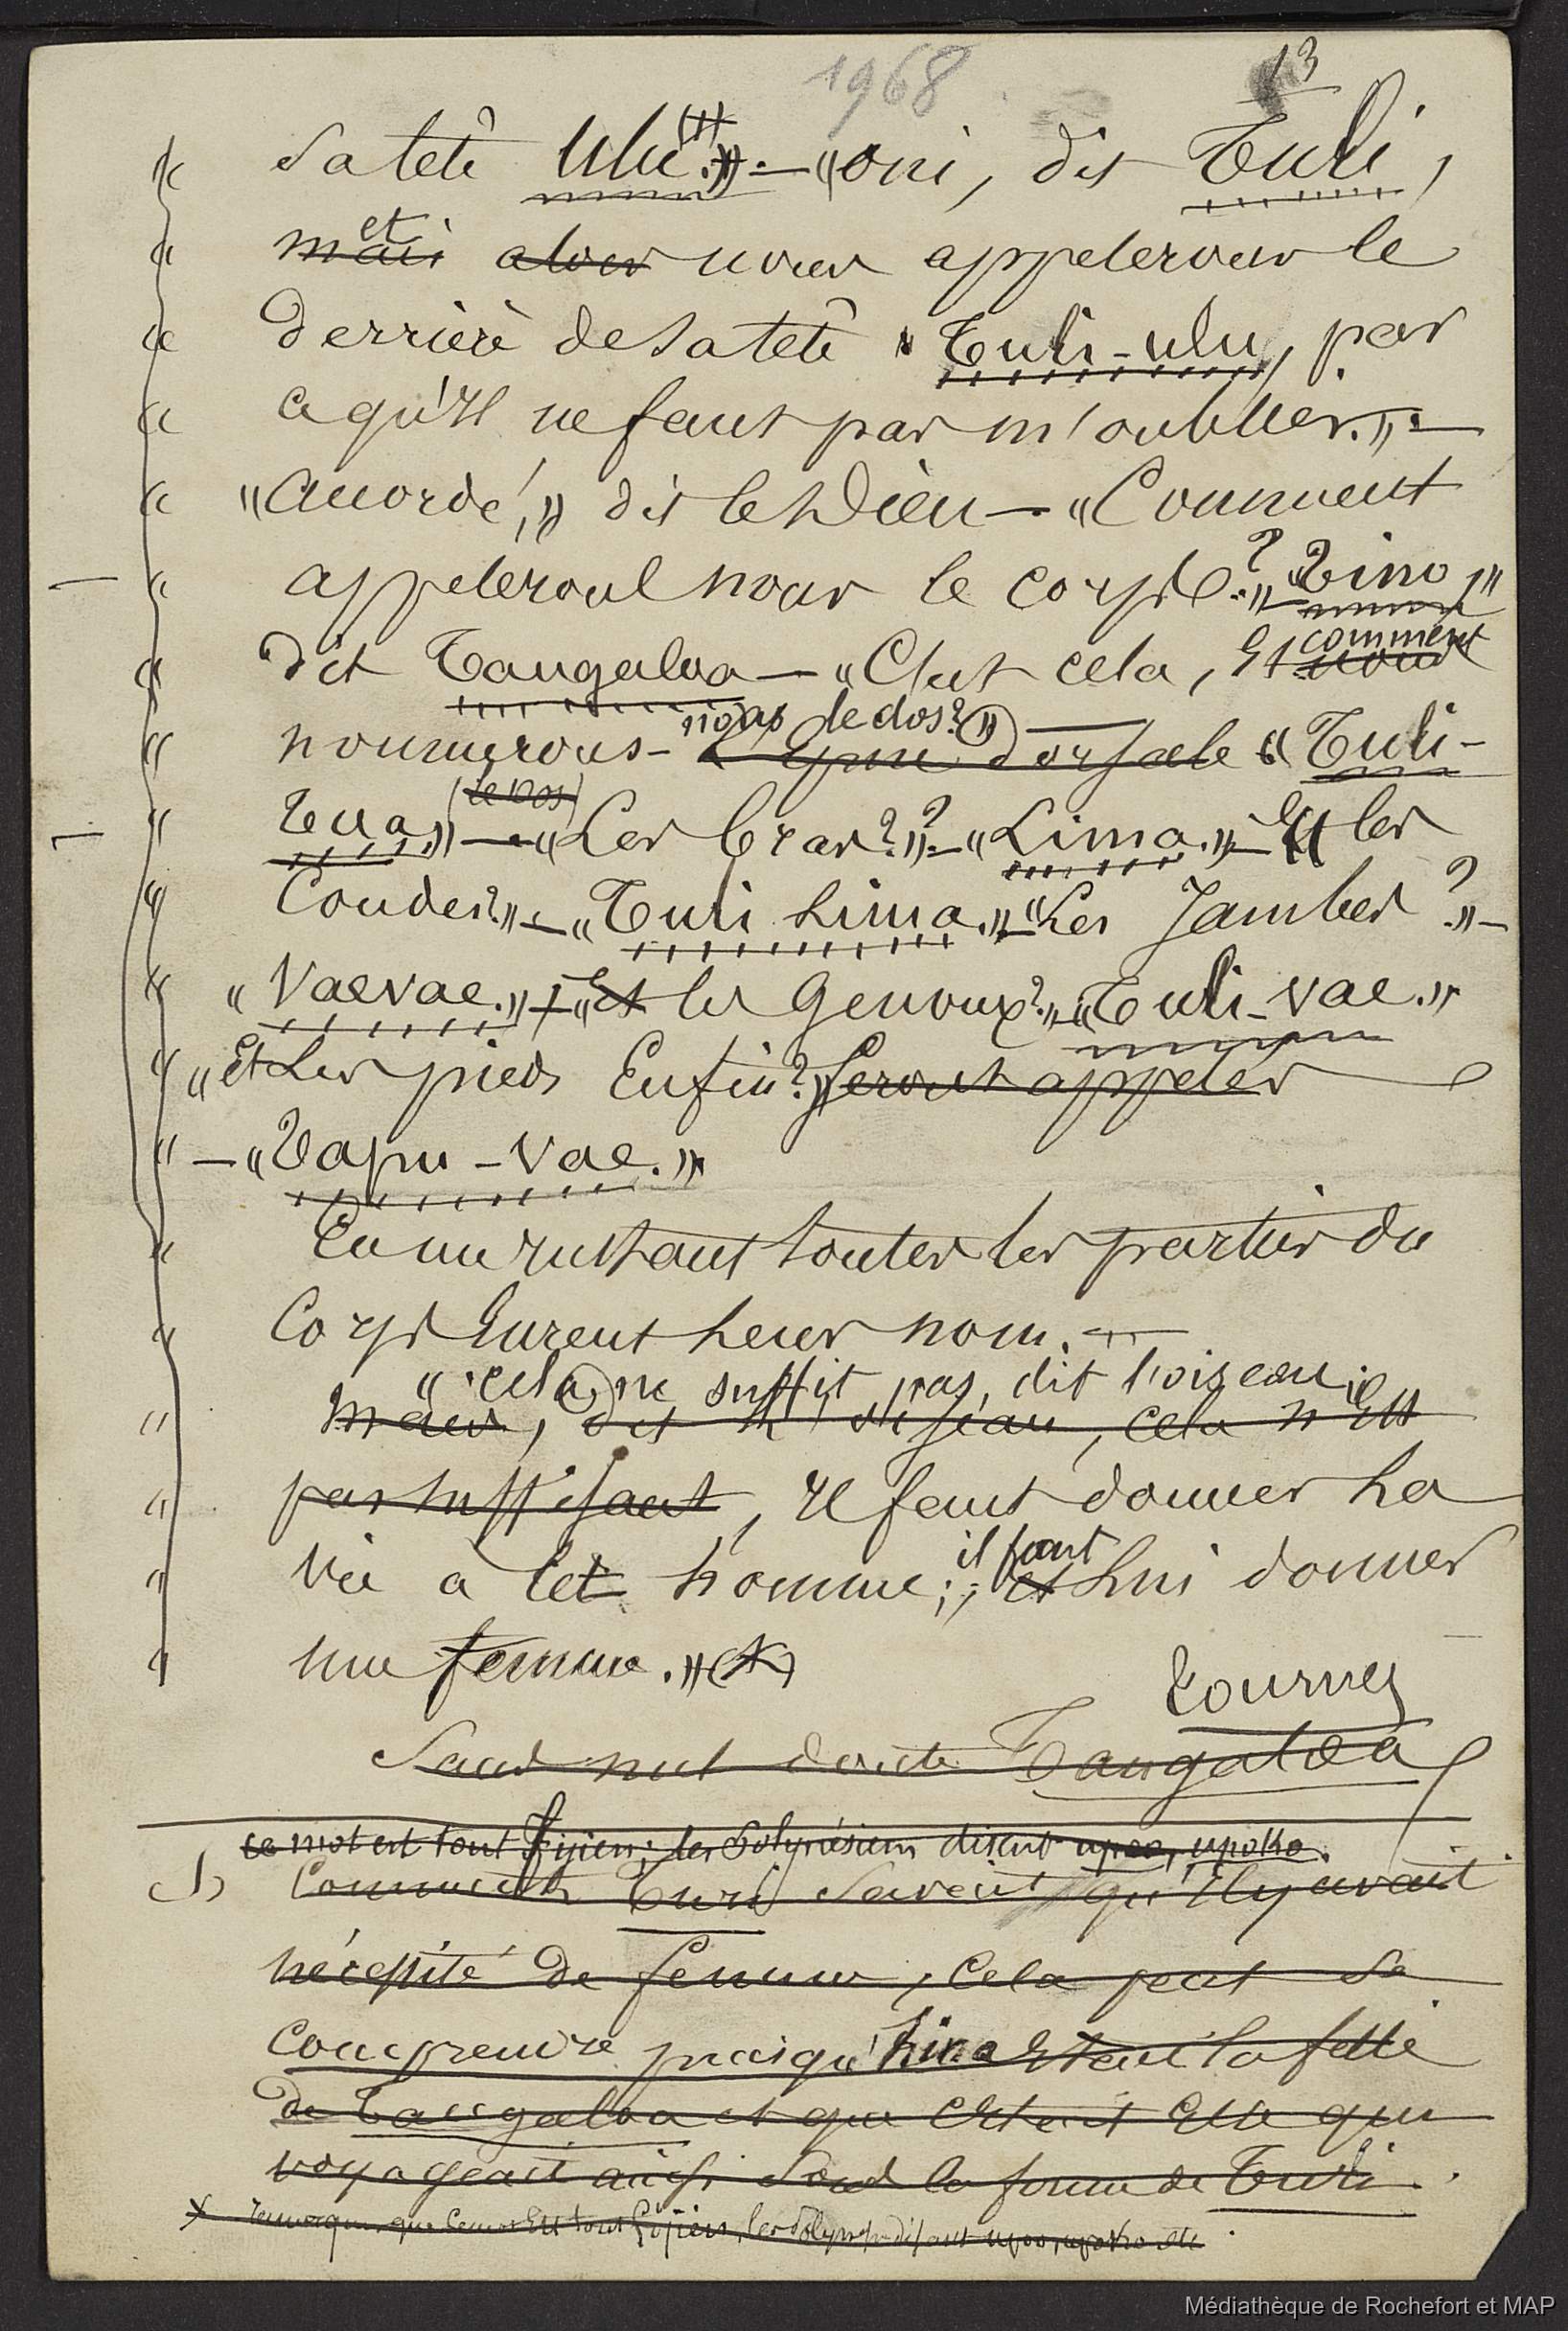 1968
13
« sa tête Ulu (1). » — « oui, dit Tuli,
« mais et alors nous appelerons le
« derrière de sa tête « Tuli-ulu, par
« ce qu'il ne faut pas m'oublier. » —
« « Accordé, » dit le Dieu — « Comment
« appelerons nous le corps ? » — « Tino, »
« dit Tangaloa — « C'est cela, Et nous comment
« nommerons-nous le dos ? » — L'épine dorsale « Tuli-
« Tua, » (le dos) — « Les bras ? » — « Lima. » — « Et les
« Coudes ? » — « Tuli Lima. » — « Les Jambes ? » —
« « Vaevae. » — « Et les Genoux ? » — « Tuli-vae. »
« « Et Les pieds Enfin ? » Seront appeler
« — « Tapu-vae. »
« En un instant toutes les parties du
« Corps Eurent leur nom. —
« Cela ne suffit pas, dit l'oiseau ;
« Mais, dit l'oiseau, cela n'Est
« pas suffisant, Il faut donner la
« Vie à Cet homme ; il faut et Lui donner
« une femme. » (x)
Tournez
Sans nul doute Tangaloa
ce mot est tout Fijien ; les Polynésiens disent upoo, upoko.
(1) Comment Turi savait qu'Il y avait
nécessité de femme, Cela peut se
Comprendre puisqu' Hina Etait la fille
de Tangaloa et que C'Etait Elle qui
voyageait ainsi Sous la forme de Turi.
x remarquer que ce mot Est tout Fijien, les Polynés. disant upoo, upoko etc.
Médiathèque de Rochefort et MAP